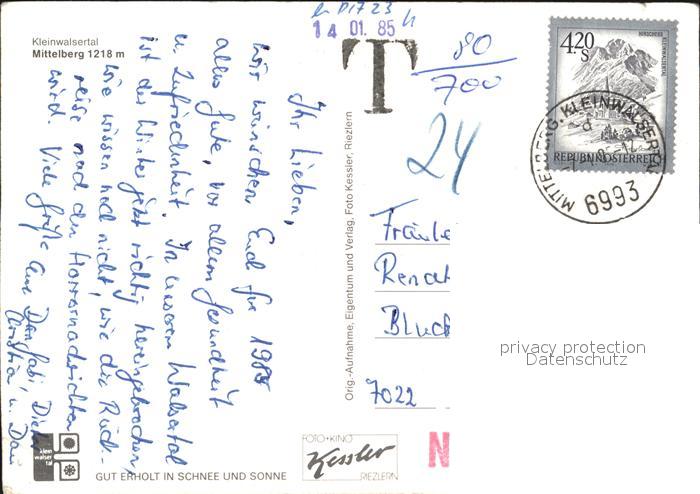 Kleinwalsertal
Mittelberg 1218 m
14. 01. 85
T
80
700
24
4.20
S
HIRSCHEGG
KLEINWALSERTAL
REPUBLIK ÖSTERREICH
MITTELBERG, KLEINWALSERTAL
6993
Ihr Lieben,
wir wünschen Euch für 1985
alles Gute, vor allem Gesundheit
u. Zufriedenheit. In unserem Walsertal
ist der Winter jetzt richtig hereingebrochen,
wir wissen noch nicht, wie die Rück-
reise nach den Horrornachrichten
wird. Viele Grüße
Orig.-Aufnahme, Eigentum und Verlag, Foto Kessler, Riezlern
Fräule
Renat
Bluck
7022
privacy protection
Datenschutz
N
klein
walser
tal
GUT ERHOLT IN SCHNEE UND SONNE
FOTO+KINO
Kessler
RIEZLERN